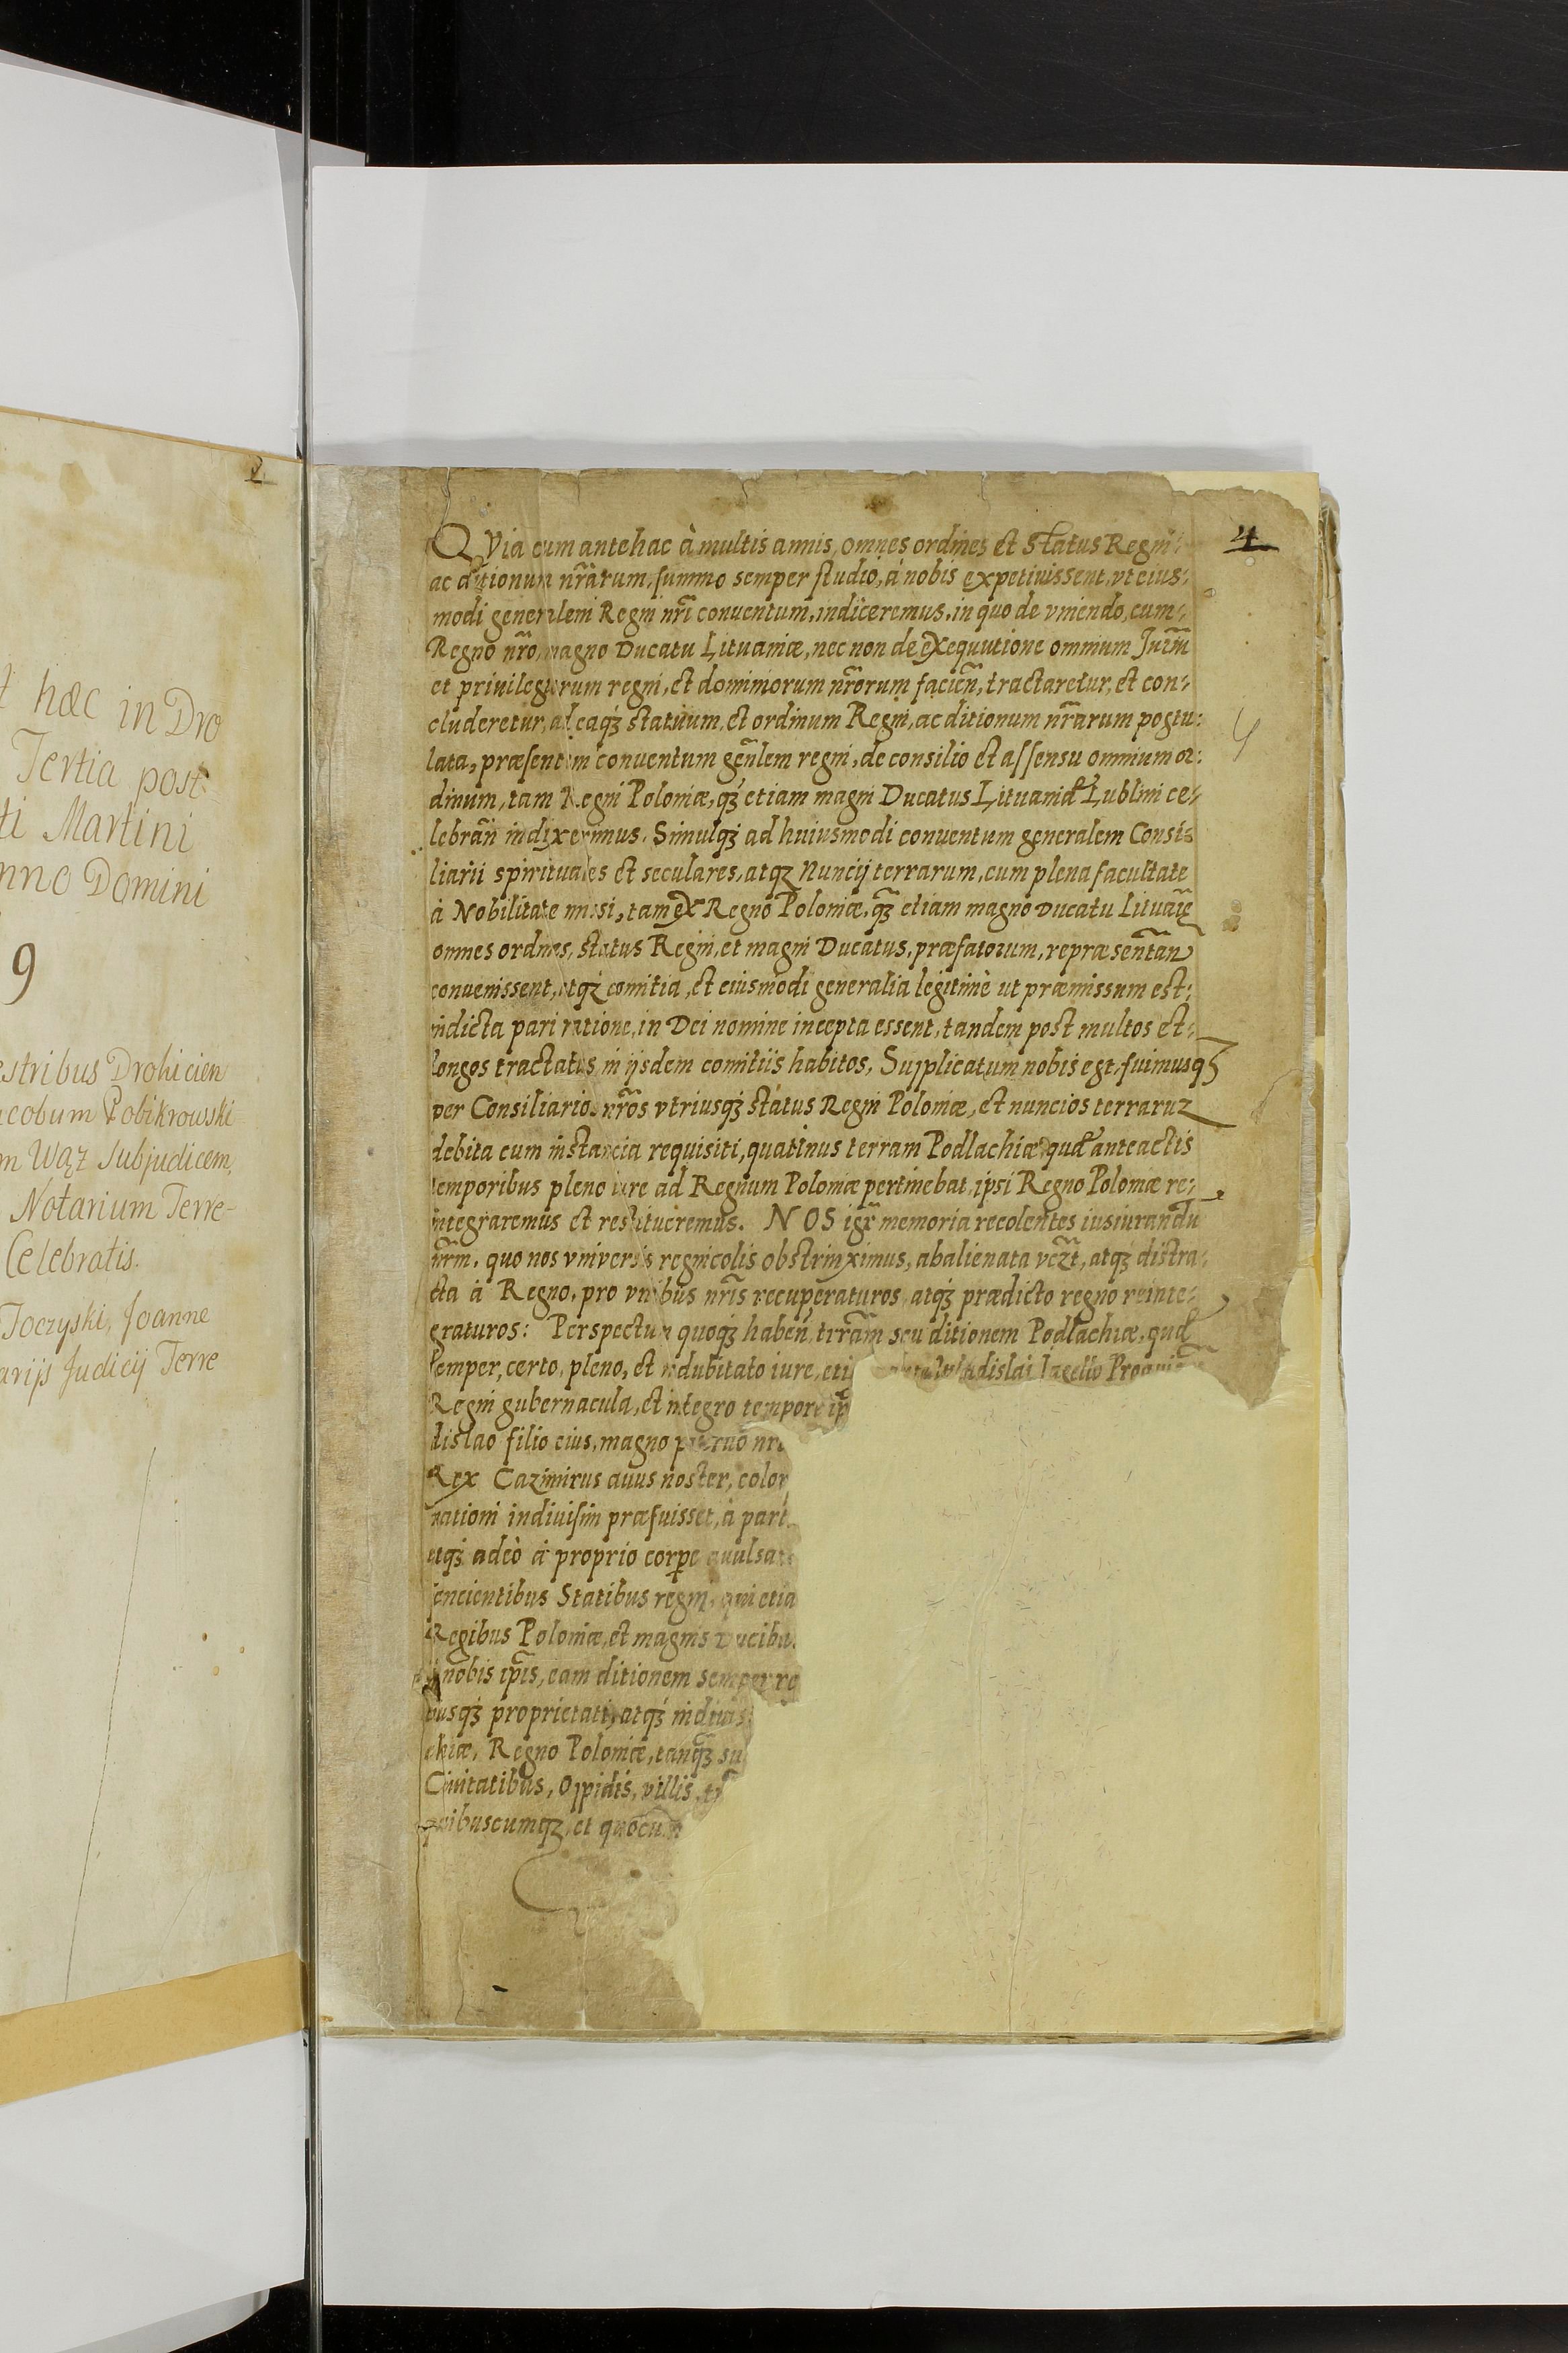 2
t hæc in Dro
Tertia post
ti Martini
nno Domini
9
estribus Drohicien
acobum Pobikrowski
m Wąż Subjudicem,
Notarium Terre-
Celebratis.
Toczyski, Joanne
arijs Judicij Terre
4
QVia cum antehac à multis annis, omnes ordines et Status Regni
ac ditionum nr̃arum, summo semper studio, à nobis expetiuissent, vt eius:
modi generalem Regni nr̃i conuentum, indiceremus, in quo de vniendo, cum:
Regno nr̃o, magno Ducatu Lituaniæ, nec non de exequutione omnium Jurĩu
et priuilegiorum regni, et dominiorum nr̃orum facień, tractaretur, et con:
cluderetur, ad eaqʒ statuum, et ordinum Regni, ac ditionum nr̃arum postu:
lata, præsentem conuentum geñlem regni, de consilio et assensu omnium or:
dinum, tam Regni Poloniæ, qʒ etiam magni Ducatus Lituaniæ Lublini ce:
lebrañ indixerimus. Simulqʒ ad huiusmodi conuentum generalem Consi:
liarii spirituales et seculares, atqʒ Nuncij terrarum, cum plena facultate
à Nobilitate missi, tam ex Regno Poloniæ, qʒ etiam magno Ducatu Lituaĩę
omnes ordines, status Regni, et magni Ducatus, præfatorum, repræsentan̄
conuenissent, atqʒ comitia, et eiusmodi generalia legitimè ut præmissum est:
indicta pari ratione, in Dei nomine incepta essent, tandem post multos et:
longos tractatus in ijsdem comitiis habitos, Supplicatum nobis est, fuimusqʒ
per Consiliarios nr̃os vtriusqʒ status Regni Poloniæ, et nuncios terraruz
debita cum instancia requisiti, quatinus terram Podlachiæ, quæ anteactis
temporibus pleno iure ad Regnum Poloniæ pertinebat, ipsi Regno Poloniæ re:
integraremus et restitueremus. NOS igr̃ memoria recolentes iusiurandū
nr̃m, quo nos vniversis regnicolis obstrinximus, abalienata vez̃t, atqʒ distra:
cta à Regno, pro viribus nr̃is recuperaturos, atqʒ prædicto regno reinte:
graturos: Perspectum quoqʒ habeń, trr̃am seu ditionem Podlachiæ, quæ
semper, certo, pleno, et indubitato iure, eti ante Vladislai Jagello Proaui
Regni gubernacula, et integro tempore ip̃
dislao filio eius, magno patruo nr
Rex Cazimirus auus noster, color
nationi indiuisim præfuisset, à part
atqʒ adeò à proprio corpe auulsa
sencientibus Statibus regni, qui etia
Regibus Poloniæ, et magnis Ducibu
nobis ip̃is, eam ditionem semper re
busqʒ proprietati, atqʒ indiuis
chiæ, Regno Poloniæ, tanqʒ su
Ciuitatibus, Oppidis, villis, t
quibuscumqʒ, et quocum